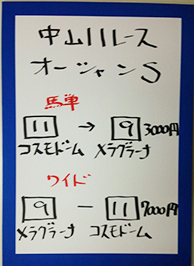 中山11レース
オーシャンS
馬単
11 → 9 3000円
コスモドーム メラグラーナ
ワイド
9 － 11 7000円
メラグラーナ コスモドーム